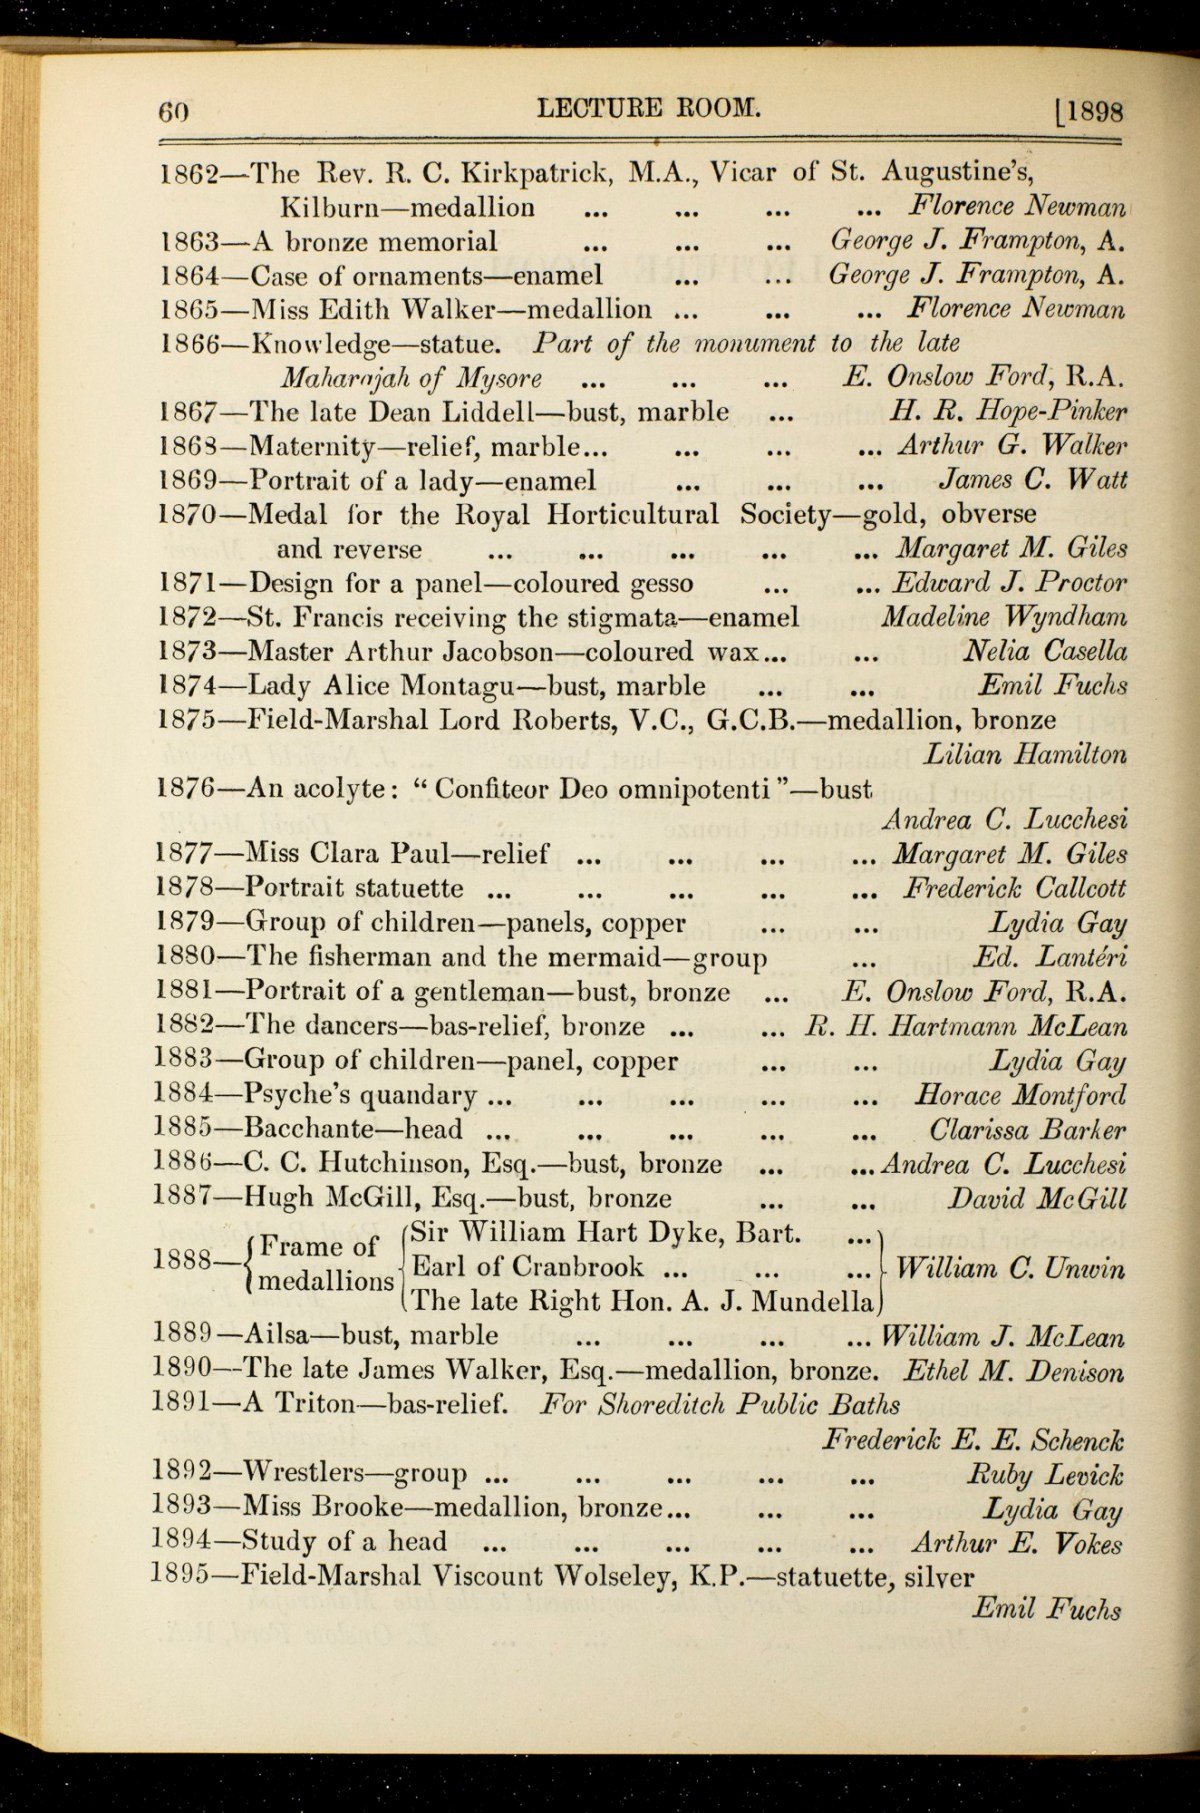 60 LECTURE ROOM. [1898
1862—The Rev. R. C. Kirkpatrick, M.A., Vicar of St. Augustine's,
Kilburn—medallion ... ... ... ... Florence Newman
1863—A bronze memorial ... ... ... George J. Frampton, A.
1864—Case of ornaments—enamel ... ... George J. Frampton, A.
1865—Miss Edith Walker—medallion ... ... ... Florence Newman
1866—Knowledge—statue. Part of the monument to the late
Maharajah of Mysore ... ... ... E. Onslow Ford, R.A.
1867—The late Dean Liddell—bust, marble ... H. R. Hope-Pinker
1868—Maternity—relief, marble... ... ... ... Arthur G. Walker
1869—Portrait of a lady—enamel ... ... ... James C. Watt
1870—Medal for the Royal Horticultural Society—gold, obverse
and reverse ... ... ... ... ... Margaret M. Giles
1871—Design for a panel—coloured gesso ... ... Edward J. Proctor
1872—St. Francis receiving the stigmata—enamel Madeline Wyndham
1873—Master Arthur Jacobson—coloured wax... ... Nelia Casella
1874—Lady Alice Montagu—bust, marble ... ... Emil Fuchs
1875—Field-Marshal Lord Roberts, V.C., G.C.B.—medallion, bronze
Lilian Hamilton
1876—An acolyte: “Confiteor Deo omnipotenti”—bust
Andrea C. Lucchesi
1877—Miss Clara Paul—relief ... ... ... ... Margaret M. Giles
1878—Portrait statuette ... ... ... ... ... Frederick Callcott
1879—Group of children—panels, copper ... ... Lydia Gay
1880—The fisherman and the mermaid—group ... Ed. Lantéri
1881—Portrait of a gentleman—bust, bronze ... E. Onslow Ford, R.A.
1882—The dancers—bas-relief, bronze ... ... R. H. Hartmann McLean
1883—Group of children—panel, copper ... ... Lydia Gay
1884—Psyche's quandary ... ... ... ... ... Horace Montford
1885—Bacchante—head ... ... ... ... ... Clarissa Barker
1886—C. C. Hutchinson, Esq.—bust, bronze ... ... Andrea C. Lucchesi
1887—Hugh McGill, Esq.—bust, bronze ... ... David McGill
Sir William Hart Dyke, Bart. ...
1888—{Frame of medallions { Earl of Cranbrook ... ... ... } William C. Unwin
The late Right Hon. A. J. Mundella
1889—Ailsa—bust, marble ... ... ... ... William J. McLean
1890—The late James Walker, Esq.—medallion, bronze. Ethel M. Denison
1891—A Triton—bas-relief. For Shoreditch Public Baths
Frederick E. E. Schenck
1892—Wrestlers—group ... ... ... ... ... Ruby Levick
1893—Miss Brooke—medallion, bronze... ... ... Lydia Gay
1894—Study of a head ... ... ... ... ... Arthur E. Vokes
1895—Field-Marshal Viscount Wolseley, K.P.—statuette, silver
Emil Fuchs